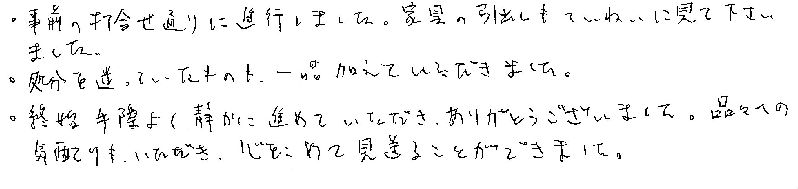 ・事前の打合せ通りに進行しました。家具の引出しもていねいに見て下さい
ました。
・処分を迷っていたものも、一部加えていただきました。
・終始手際よく静かに進めていただき、ありがとうございました。品々への
気配りも、いただき、心をこめて見送ることができました。